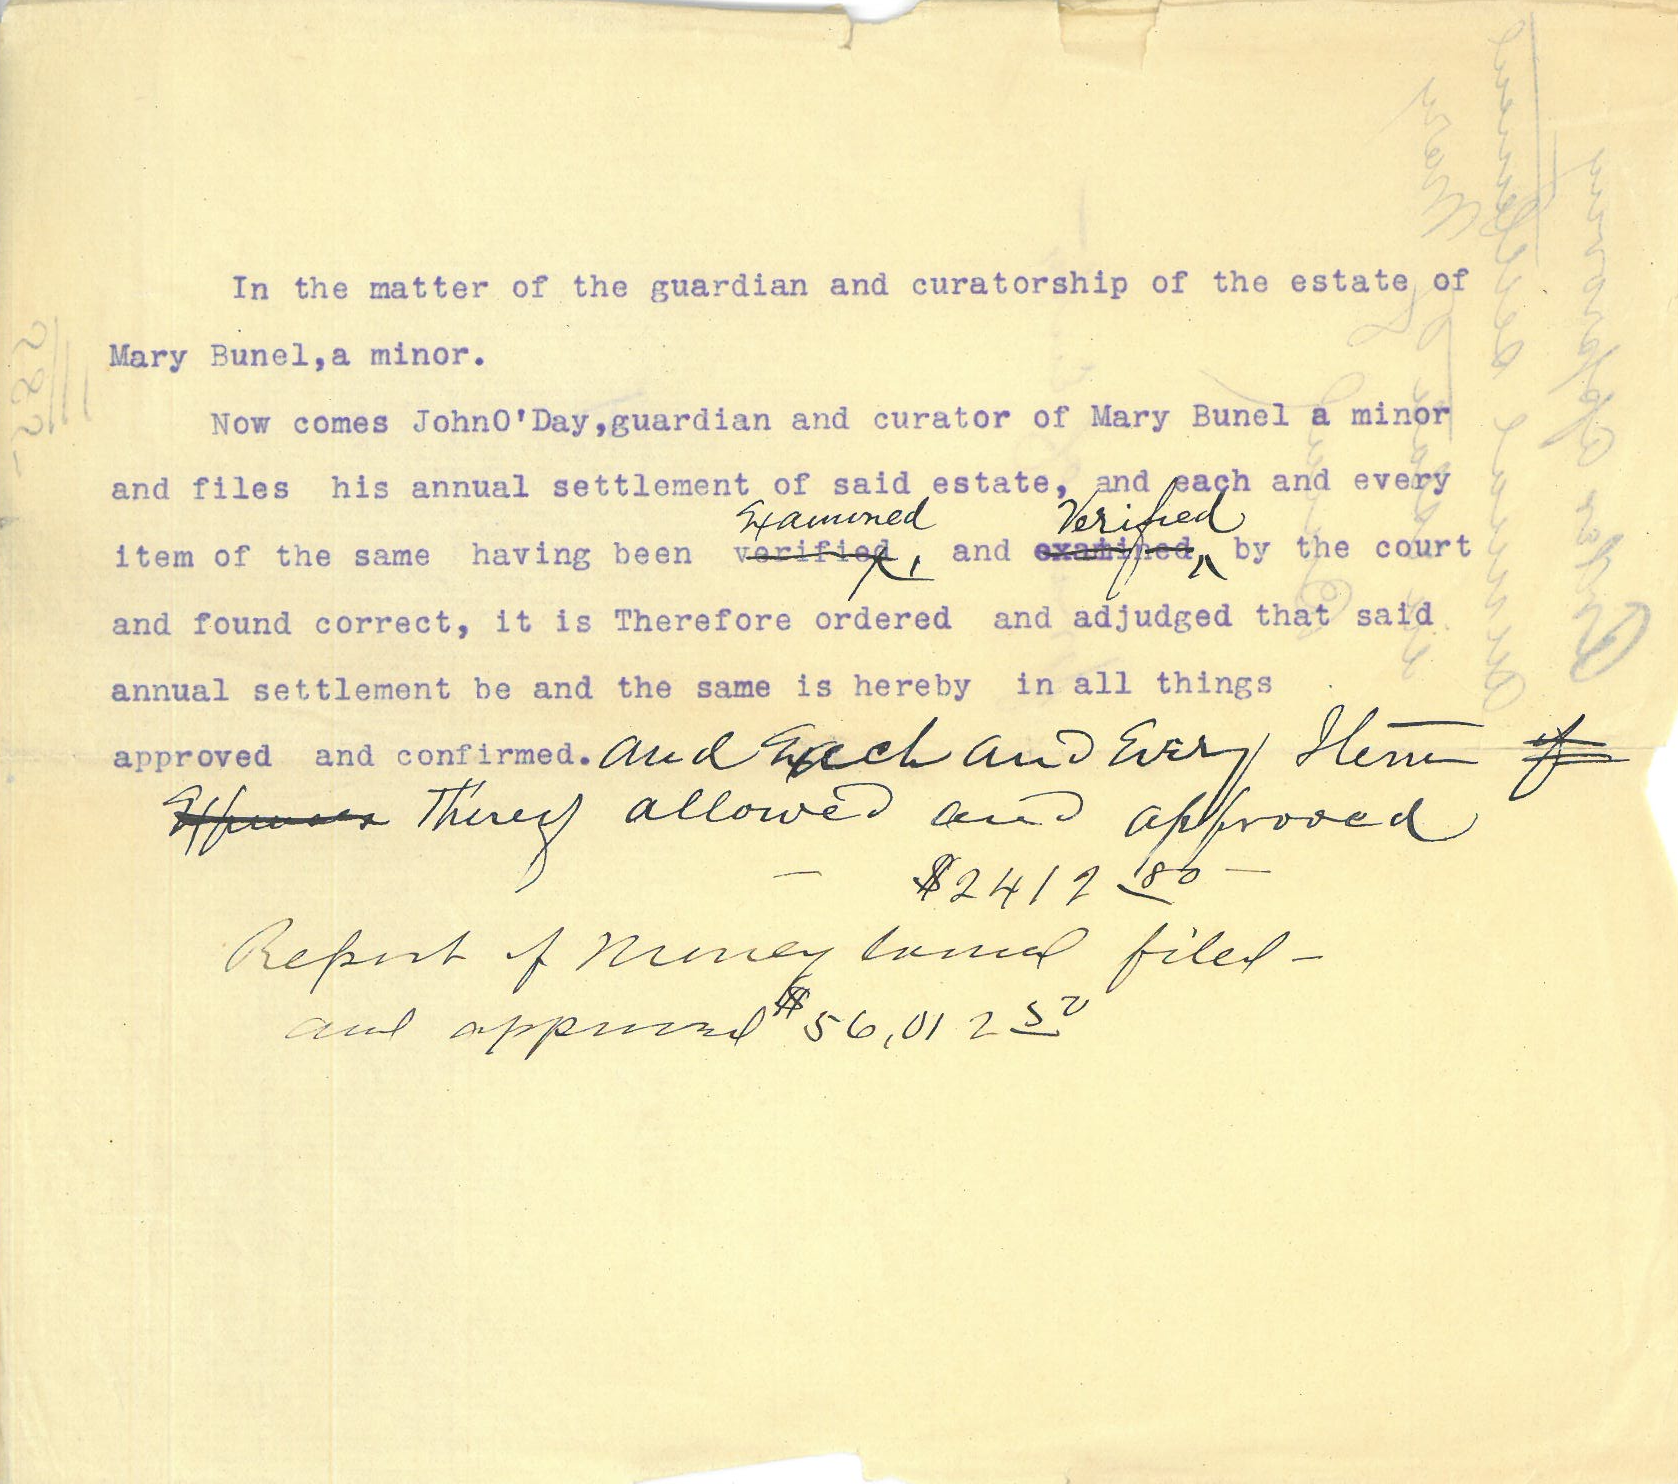 In the matter of the guardian and curatorship of the estate of
Mary Bunel,a minor.
Now comes JohnO'Day,guardian and curator of Mary Bunel a minor
and files his annual settlement of said estate, and each and every
Examined Verified
item of the same having been verified, and examined by the court
and found correct, it is Therefore ordered and adjudged that said
annual settlement be and the same is hereby in all things
approved and confirmed. and Each and Every Item of
Expenses Thereof allowed and approved
— $2412 80 —
Report of Money loaned filed —
and approved $56,012 50